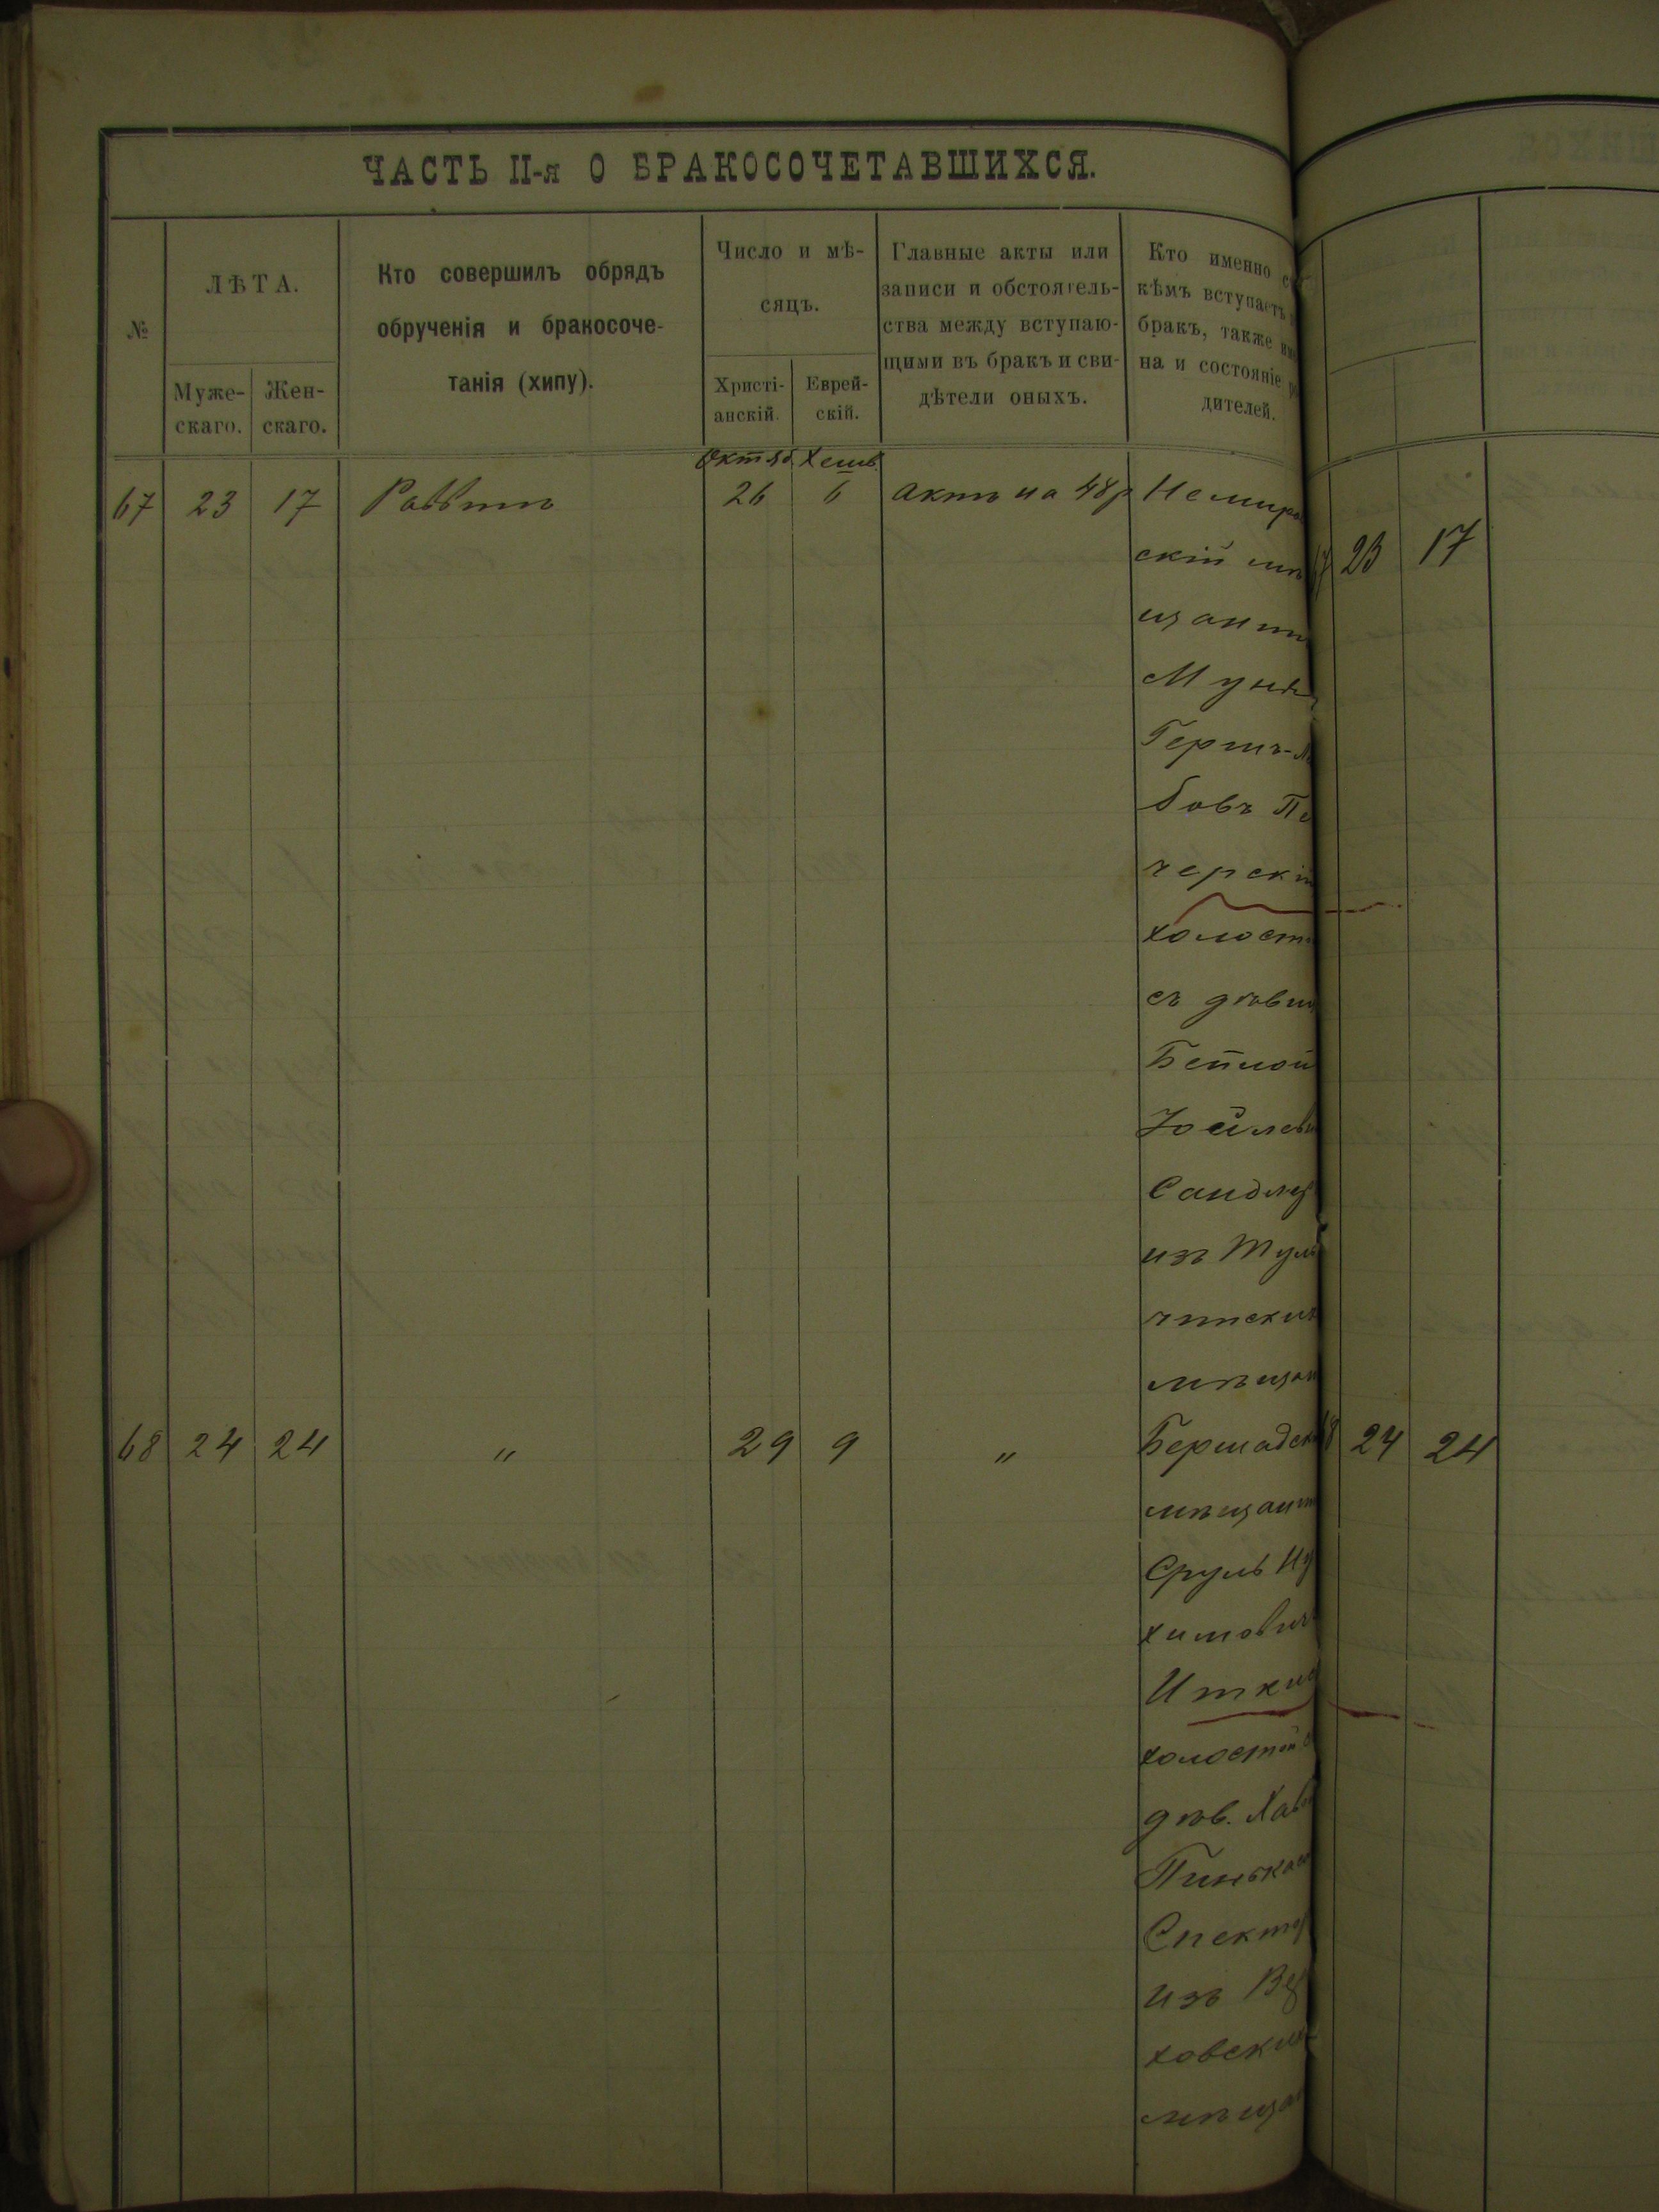 ЧАСТЬ II-я О БРАКОСОЧЕТАВШИХСЯ.
№
ЛѢТА.
Муже-
скаго.
Жен-
скаго.
Кто совершилъ обрядъ
обрученія и бракосоче-
танія (хипу).
Число и мѣ-
сяцъ.
Христі-
анскій.
Еврей-
скій.
Главные акты или
записи и обстоятель-
ства между вступаю-
щими въ бракъ и сви-
дѣтели оныхъ.
Кто именно съ
кѣмъ вступаетъ
бракъ, также име
на и состояніе ро
дителей.
Октяб. Хешв.
67 23 17 Раввинъ 26 6 Актъ на 48 р Немиро
скій мѣ
щанин
Герш-Ле
бовъ Пе
черскій
холост
съ дѣвиц
Бейлой
Іойлев
Сандлер
изъ Туль
чинских
мѣщан
23 17
68 24 24 " 29 9 " Бершадск
мѣщанин
Сруль Ну
химович
Иткис
холостой
дѣв. Хав
Пинькас
Спектор
изъ
ховских
мѣщан
68 24 24